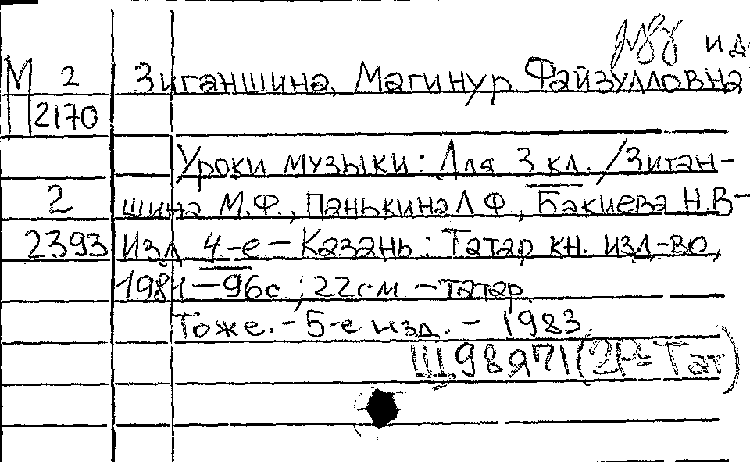 муз идз
М 2 Зиганшина, Магинур Файзулловна
2170
Уроки музыки: Для 3 кл. /Зиган-
2 шина М.Ф., Панькина Л Ф, Бакиева Н.В-
2393 Изд 4-е - Казань: Татар кн. изд-во,
1981 - 96с ; 22см - татар
Тоже. - 5-е изд. - 1983
Щ98я71(2Р=Тат)